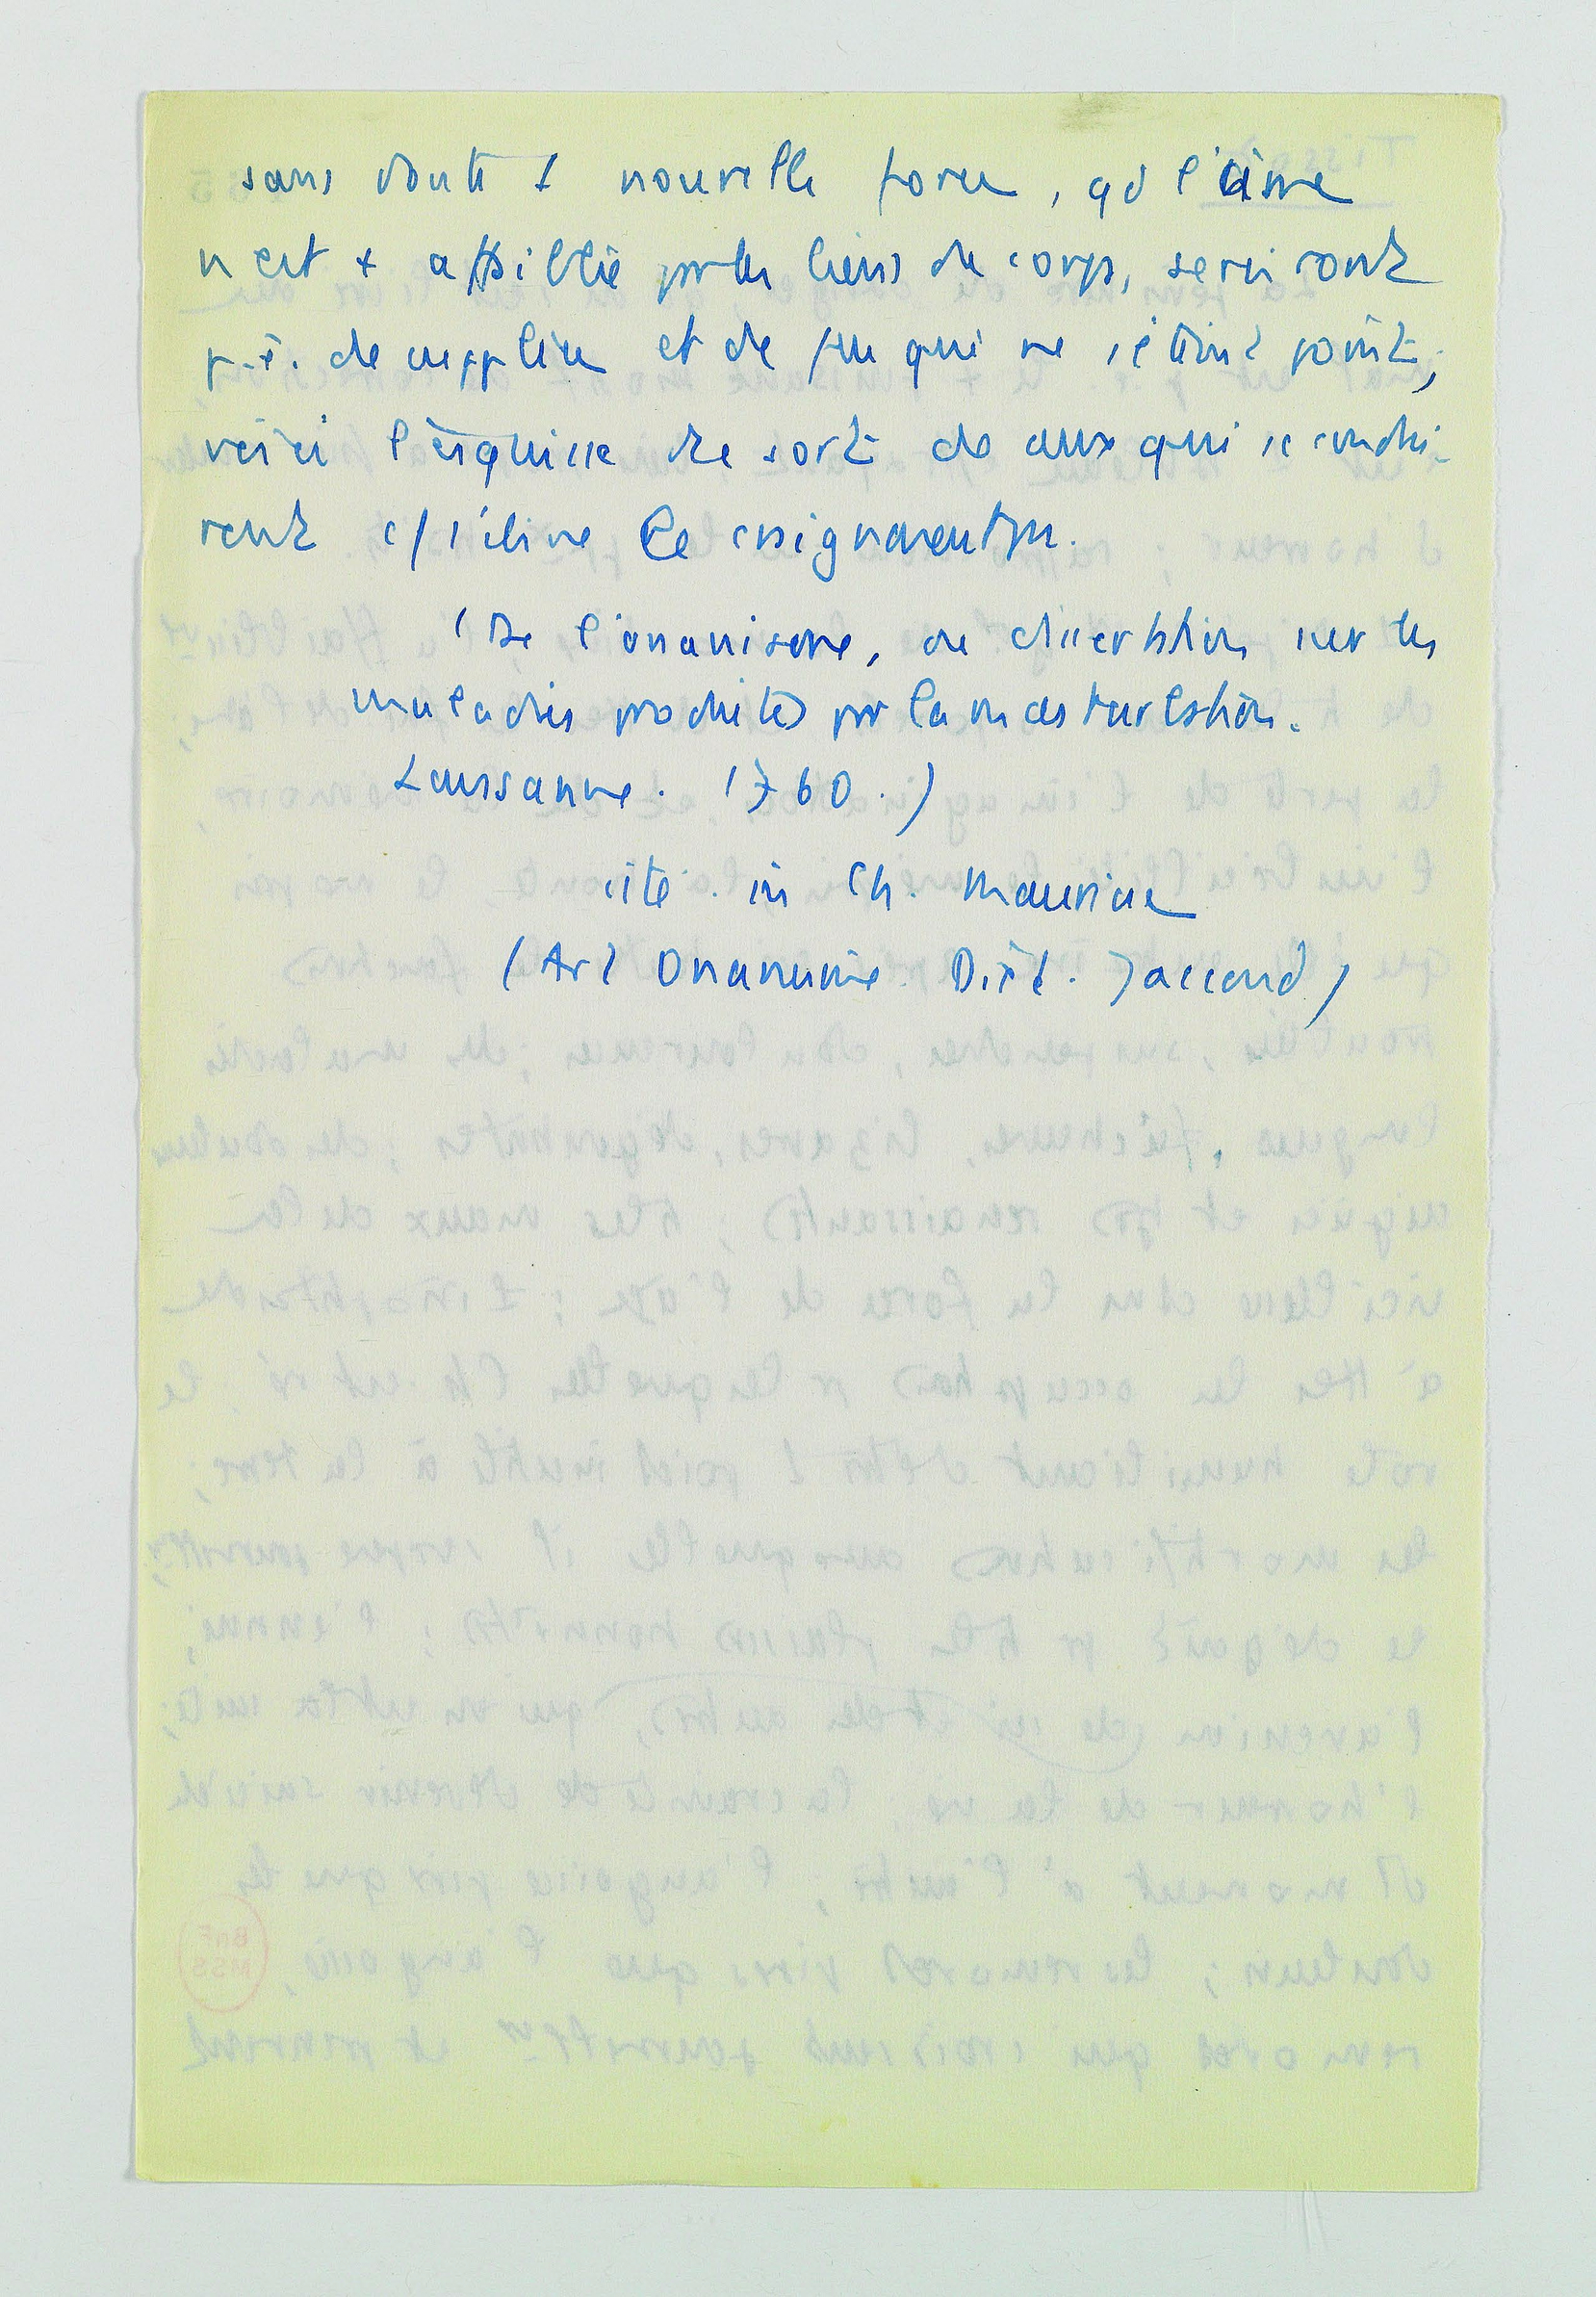 sans doute 1 nouvelle force, qd l'âme
n'est + affaiblie par les liens du corps, serviront
p.ê. de supplice et de feu qui ne s'éteint point;
voici l'esquisse du sort de ceux qui se condui-
ront c/ s'ils ne le craignaient pas.
(De l'onanisme, ou dissertation sur les
maladies produites par la masturbation.
Lausanne. 1760.)
cité. in Ch. Mauriac
(Art Onanisme Dict. Jaccoud)